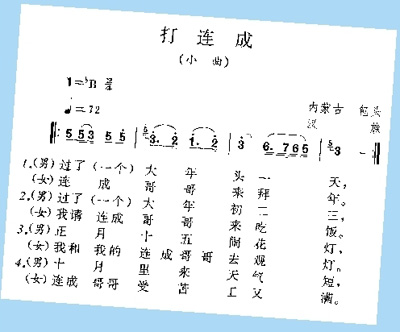 打连成
(小曲)
1=♭B
♩=72
内蒙古 包头
汉族
5 5 3 5 5 3. 2 1. 2 3 6. 7 6 5 3 -
1.(男)过了(一个)大年头一天,
(女)连成哥哥来拜年。
2.(男)过了(一个)大年初二三,
(女)我请连成哥哥来吃饭。
3.(男)正月十五闹花灯,
(女)我和我的连成哥哥去观灯。
4.(男)十月里来天气短,
(女)连成哥哥受苦工又满。